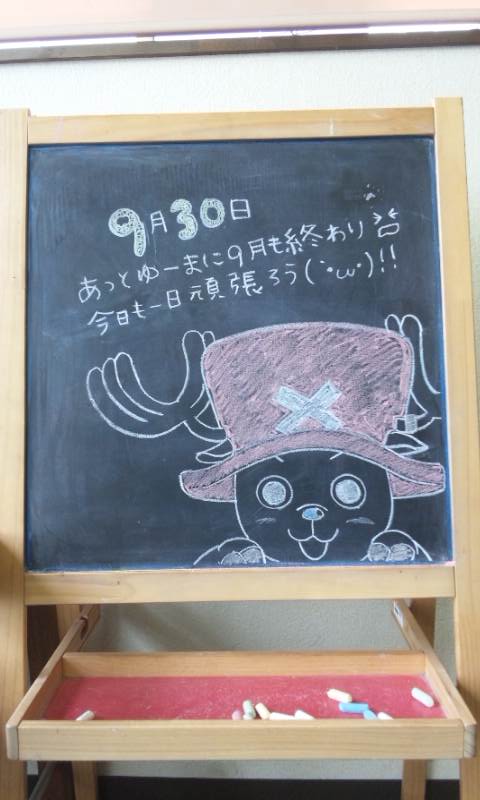 9月30日
あっとゆーまに9月も終わり
今日も一日頑張ろう(`・ω・)!!